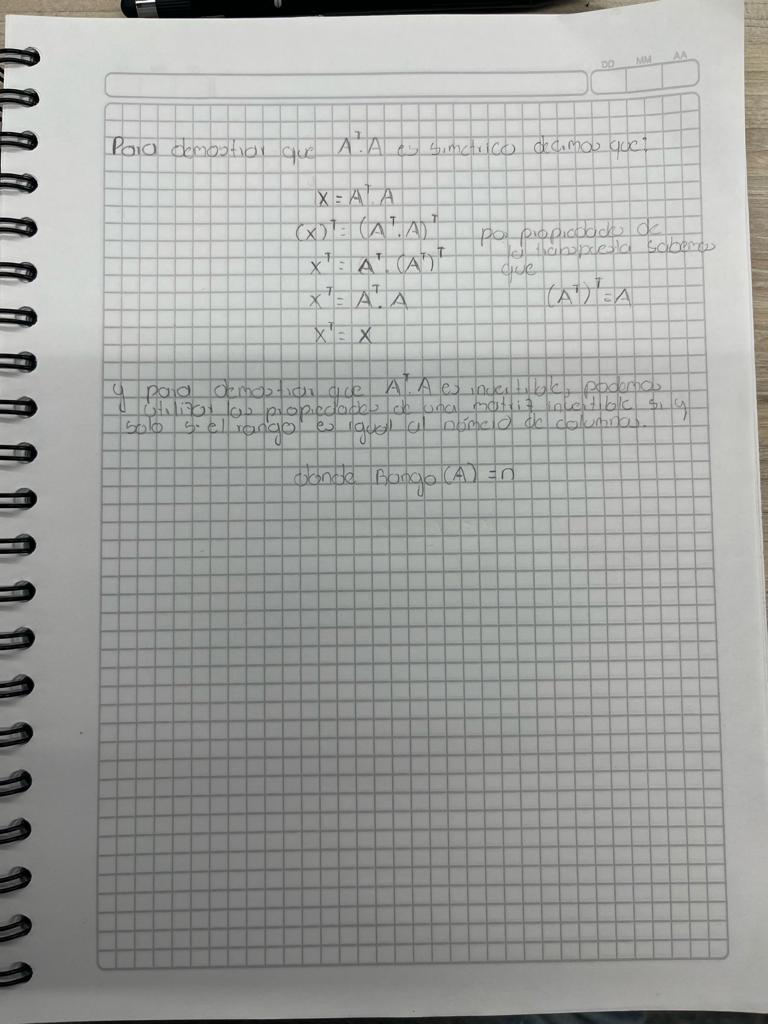 DD MM AA
Para demostrar que Aᵀ·A es simetrico decimos que:
X = Aᵀ·A
(X)ᵀ = (Aᵀ·A)ᵀ por propiedades de
la transpuesta sabemos
Xᵀ = Aᵀ·(Aᵀ)ᵀ que
Xᵀ = Aᵀ·A (Aᵀ)ᵀ = A
Xᵀ = X
y para demostrar que Aᵀ·A es invertible, podemos
utilizar las propiedades de una matriz invertible si y
solo si el rango es igual al número de columnas.
donde Rango(A) = n